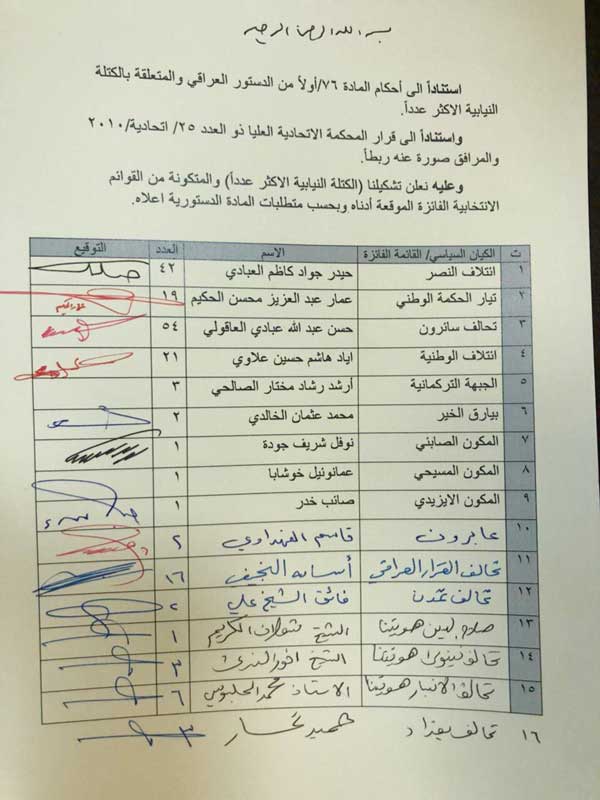 بسم الله الرحمن الرحيم
استناداً الى أحكام المادة ٧٦/أولاً من الدستور العراقي والمتعلقة بالكتلة
النيابية الاكثر عدداً.
واستناداً الى قرار المحكمة الاتحادية العليا ذو العدد ٢٥/ اتحادية/٢٠١٠
والمرافق صورة عنه ربطاً.
وعليه نعلن تشكيلنا (الكتلة النيابية الاكثر عدداً) والمتكونة من القوائم
الانتخابية الفائزة الموقعة أدناه وبحسب متطلبات المادة الدستورية اعلاه.
ت الكيان السياسي/ القائمة الفائزة الاسم العدد التوقيع
١ ائتلاف النصر حيدر جواد كاظم العبادي ٤٢
٢ تيار الحكمة الوطني عمار عبد العزيز محسن الحكيم ١٩
٣ تحالف سائرون حسن عبد الله عبادي العاقولي ٥٤
٤ ائتلاف الوطنية اياد هاشم حسين علاوي ٢١
٥ الجبهة التركمانية أرشد رشاد مختار الصالحي ٣
٦ بيارق الخير محمد عثمان الخالدي ٢
٧ المكون الصابئي نوفل شريف جودة ١
٨ المكون المسيحي عمانوئيل خوشابا ١
٩ المكون الايزيدي صائب خدر ١
١٠ عابرون قاسم الفهداوي ٢
١١ تحالف القرار العراقي أسامه النجيفي ١٦
١٢ تحالف تمدن فائق الشيخ علي ٢
١٣ صلاح الدين هويتنا الشيخ شعلان الكريم ١
١٤ تحالف نينوى هويتنا الشيخ ٣
١٥ تحالف الانبار هويتنا الاستاذ محمد الحلبوسي ٦
١٦ تحالف بغداد ٣